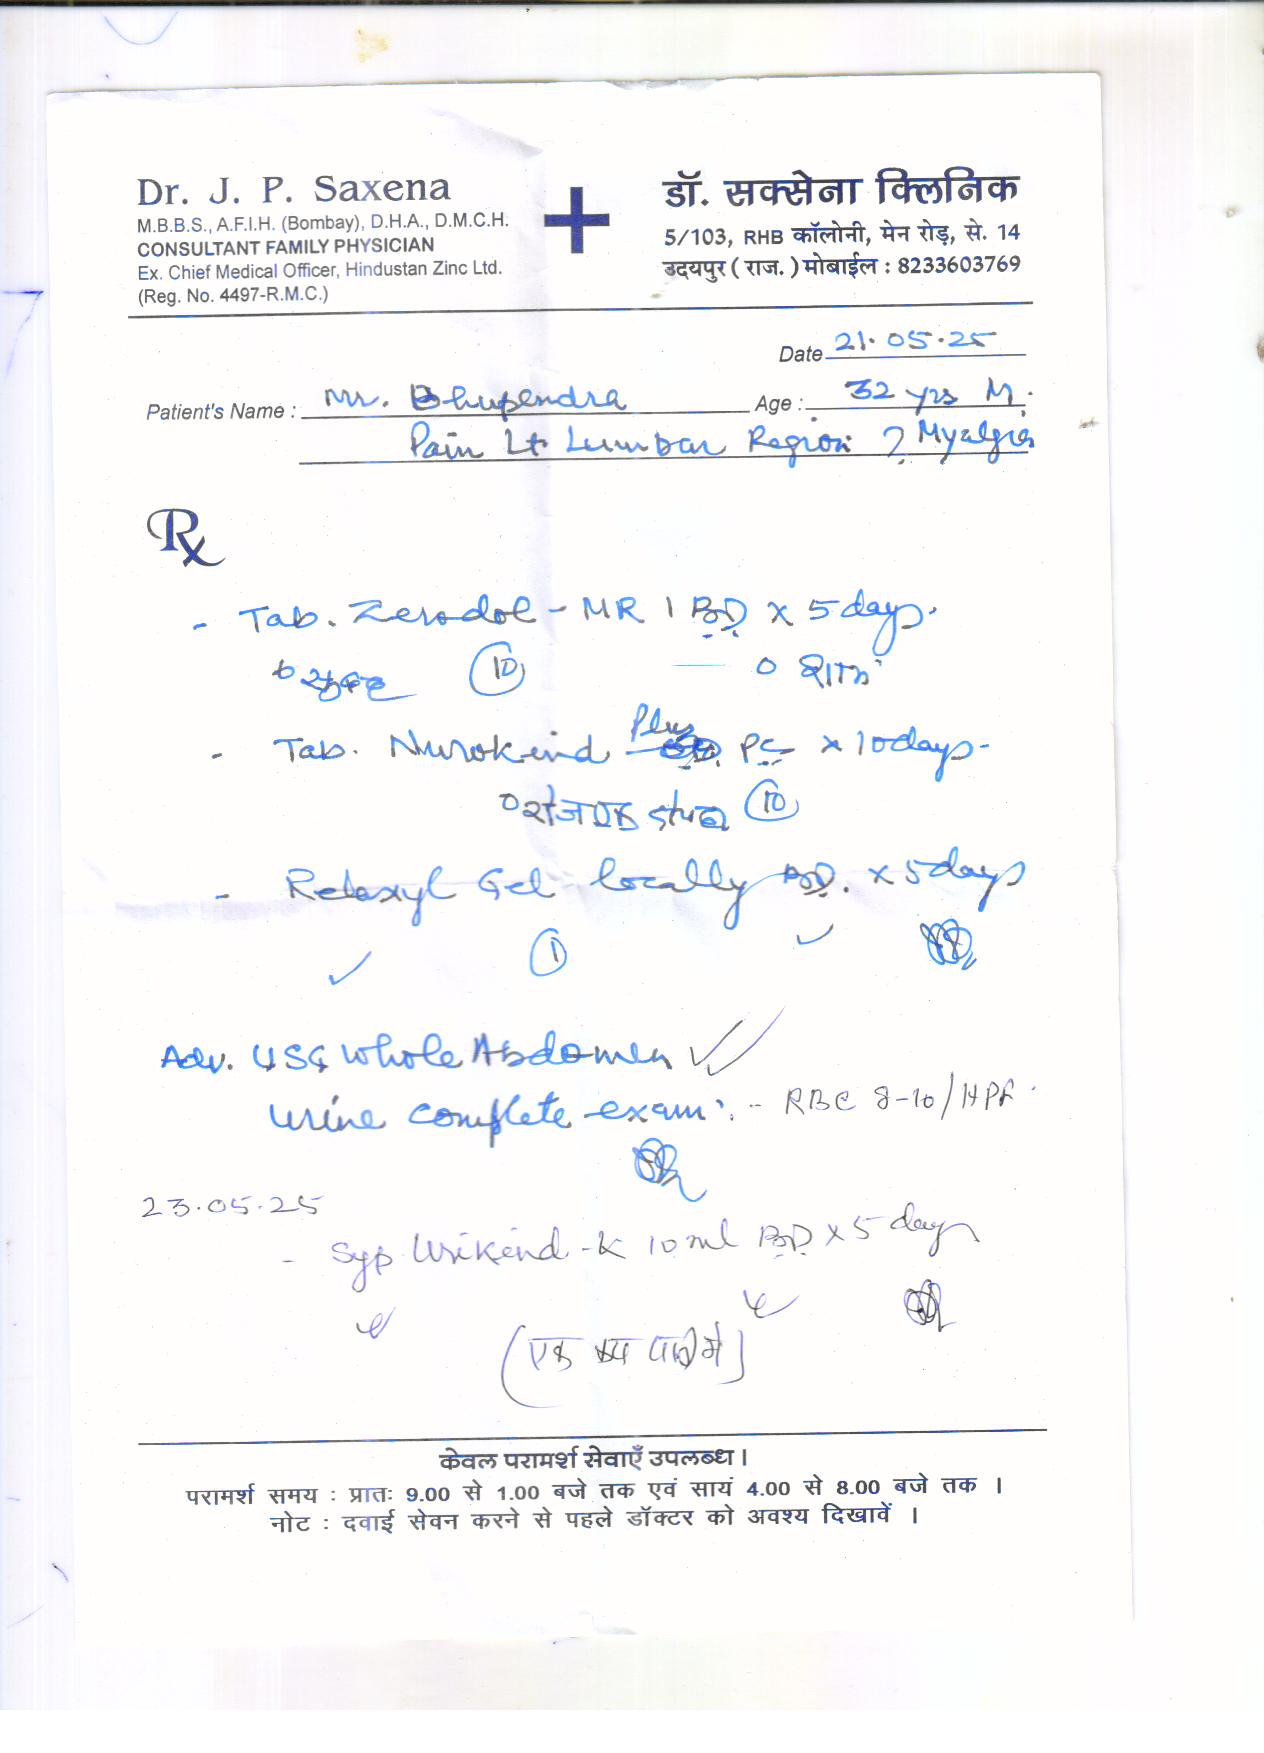 Dr. J. P. Saxena
M.B.B.S., A.F.I.H. (Bombay), D.H.A., D.M.C.H.
CONSULTANT FAMILY PHYSICIAN
Ex. Chief Medical Officer, Hindustan Zinc Ltd.
(Reg. No. 4497-R.M.C.)
डॉ. सक्सेना क्लिनिक
5/103, RHB कॉलोनी, मेन रोड़, से. 14
उदयपुर ( राज. ) मोबाईल : 8233603769
Date 21.05.25
Patient's Name : Mr. Bhupendra Age : 32 yrs M.
Pain Lt Lumbar Region ? Myalgia
Rx
- Tab. Zerodol - MR 1 BD x 5 days.
सुबह 10 शाम
- Tab. Nurokind Plus PC x 10 days-
रोज एक 10
- Relaxyl Gel locally BD. x 5 days
1
Adv. USG Whole Abdomen
Urine complete exam. - RBC 8-10/HPF
23.05.25
- Syp Urikind - K 10 ml BD x 5 days
(एक कप पानी में)
केवल परामर्श सेवाएँ उपलब्ध ।
परामर्श समय : प्रातः 9.00 से 1.00 बजे तक एवं सायं 4.00 से 8.00 बजे तक ।
नोट : दवाई सेवन करने से पहले डॉक्टर को अवश्य दिखावें ।